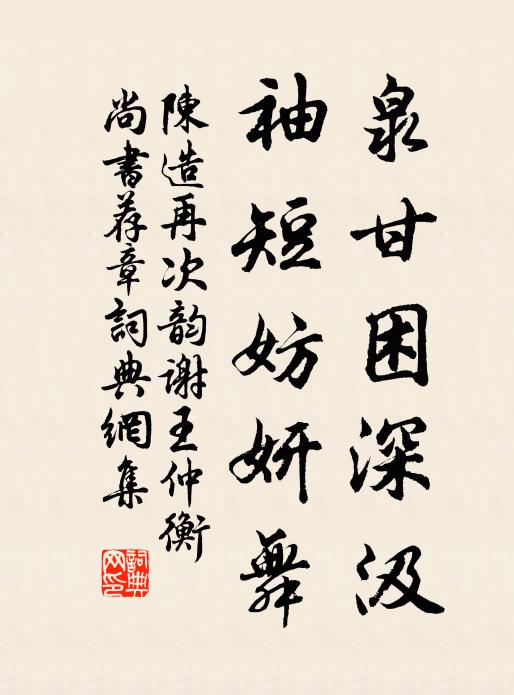 泉甘困深汲
袖短妨妍舞
陳造再次韵謝王仲衡
尚書荐章詞典網集
詞典网印